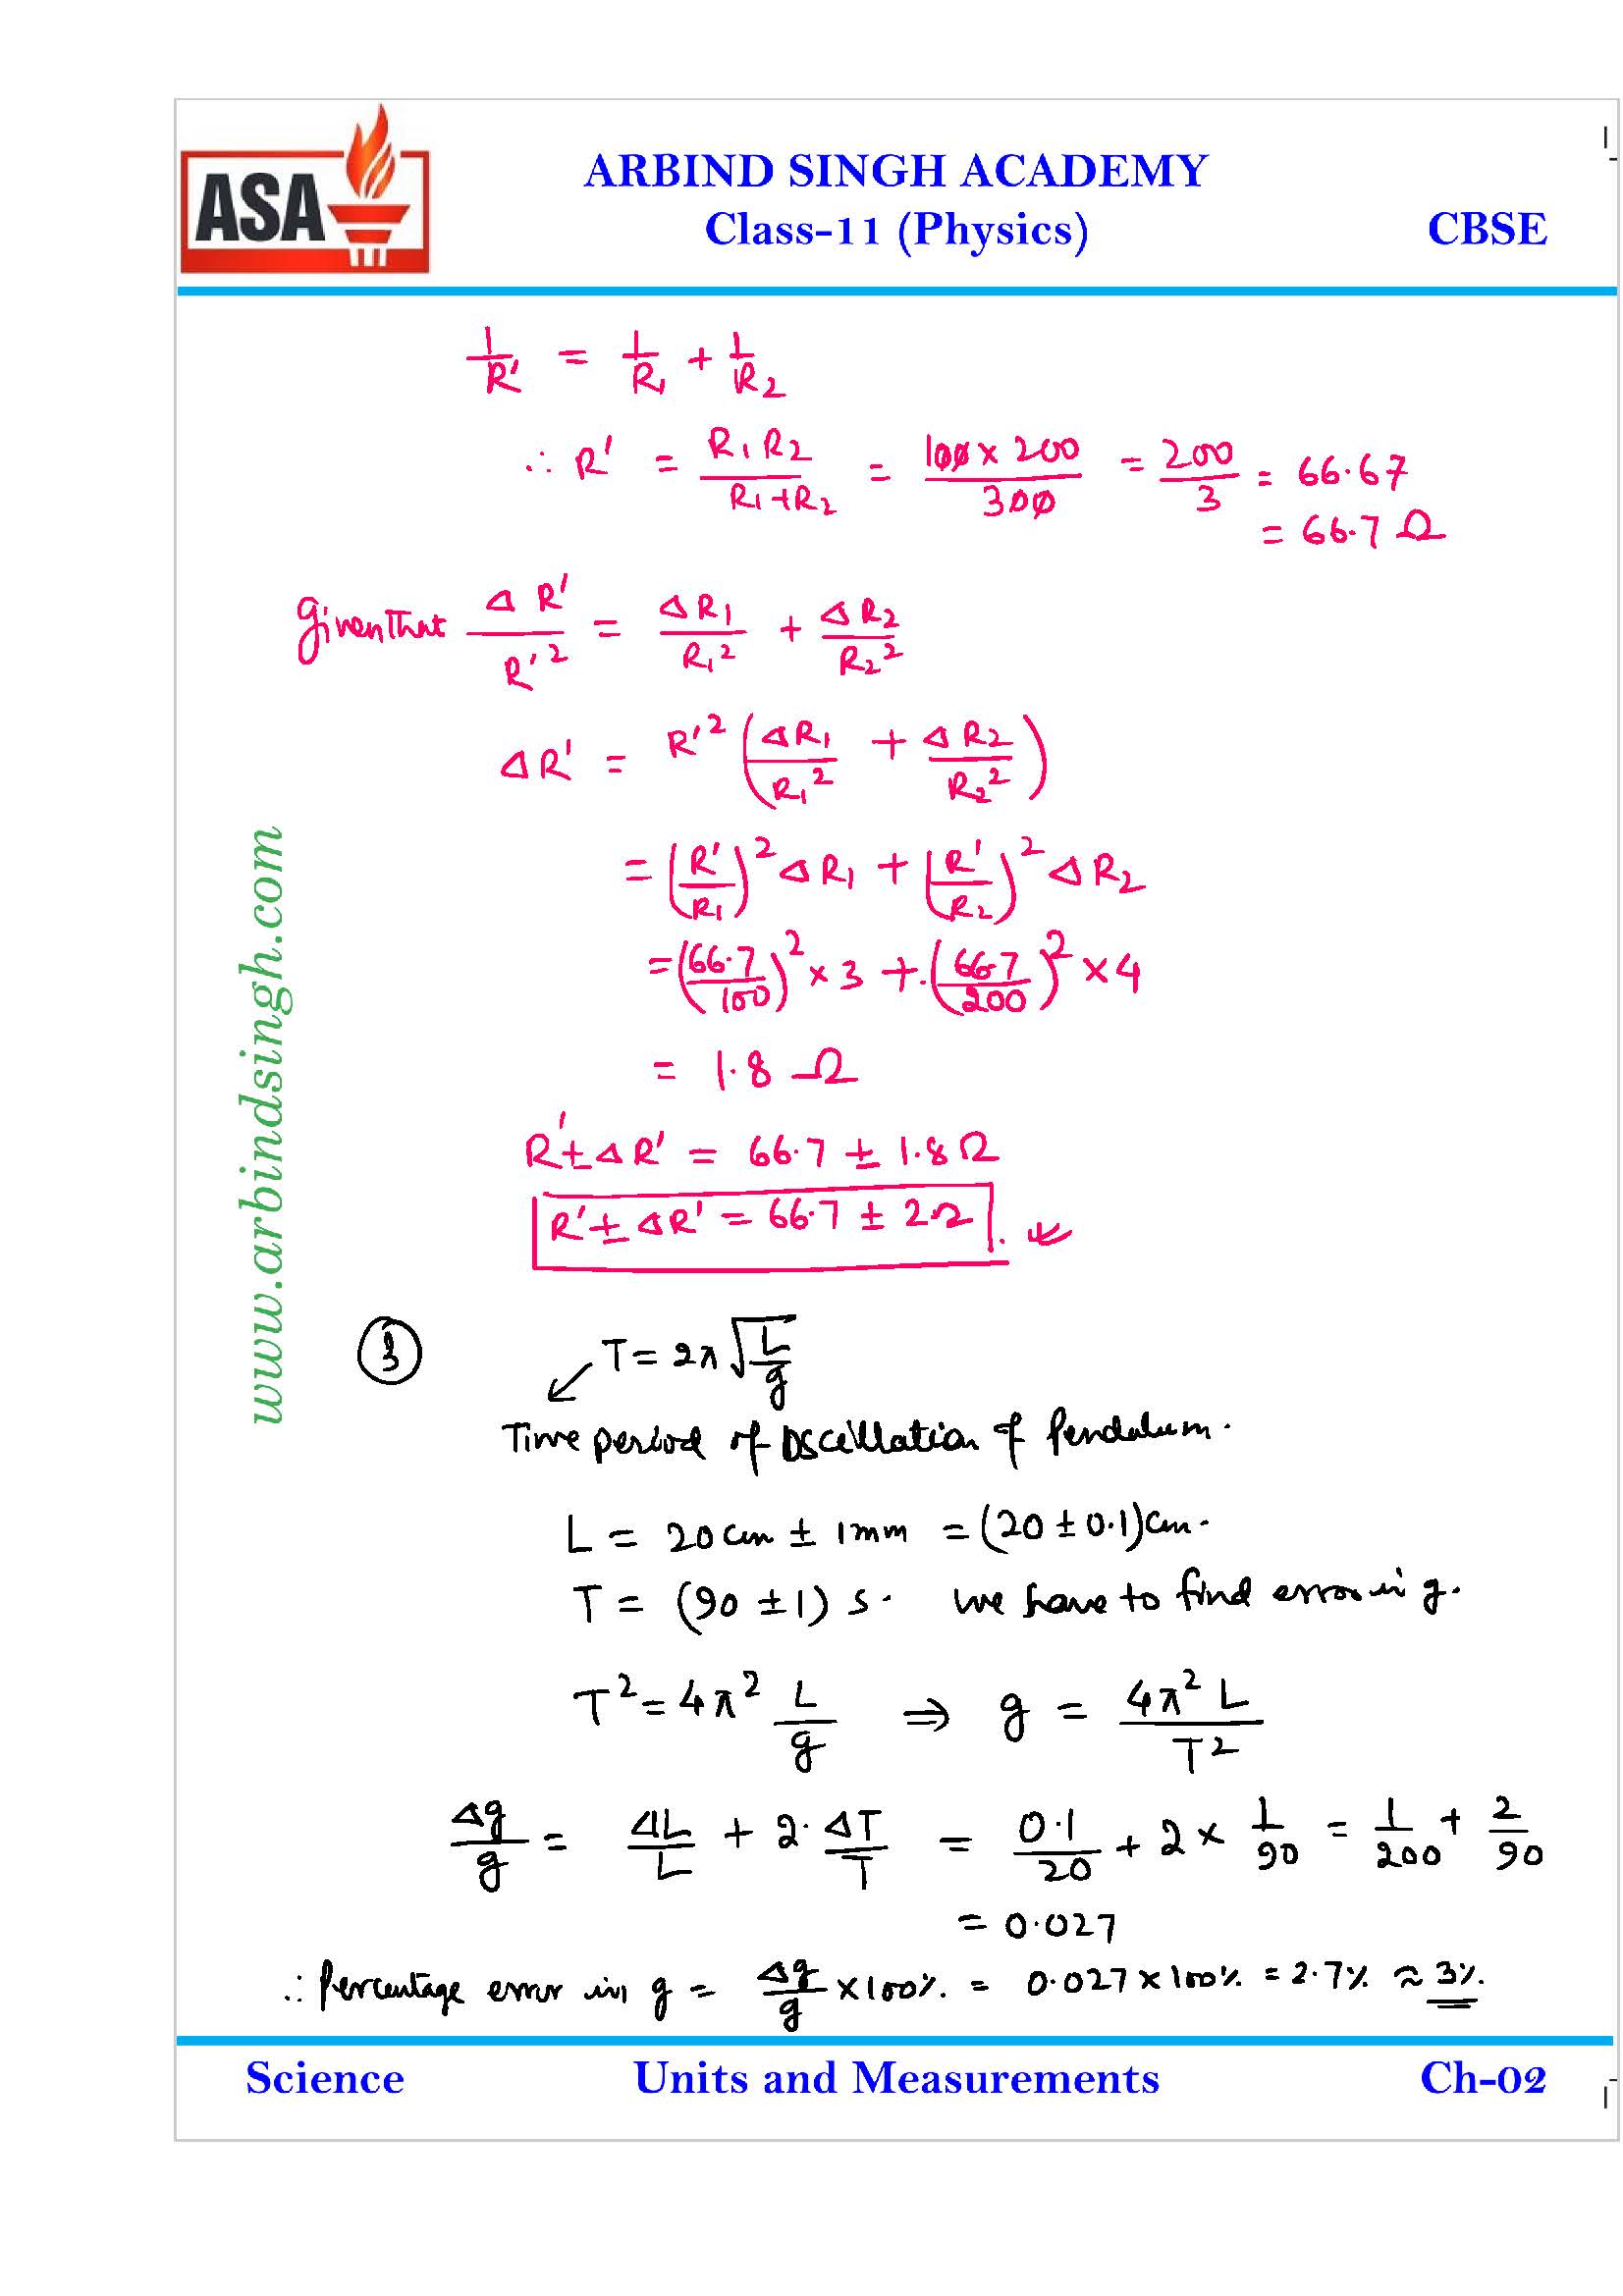 ASA
ARBIND SINGH ACADEMY
Class-11 (Physics) CBSE
1/R' = 1/R₁ + 1/R₂
∴ R' = R₁R₂/R₁+R₂ = 100 × 200/300 = 200/3 = 66.67
= 66.7 Ω
given that ΔR'/R'² = ΔR₁/R₁² + ΔR₂/R₂²
ΔR' = R'² (ΔR₁/R₁² + ΔR₂/R₂²)
= (R'/R₁)² ΔR₁ + (R'/R₂)² ΔR₂
= (66.7/100)² × 3 + (66.7/200)² × 4
= 1.8 Ω
R' ± ΔR' = 66.7 ± 1.8 Ω
R' ± ΔR' = 66.7 ± 2Ω
www.arbindsingh.com
3 T = 2π√(L/g)
Time period of Oscillation of Pendulum.
L = 20 cm ± 1mm = (20 ± 0.1) cm.
T = (90 ± 1) s. we have to find error in g.
T² = 4π² L/g ⇒ g = 4π² L/T²
Δg/g = ΔL/L + 2. ΔT/T = 0.1/20 + 2 × 1/90 = 1/200 + 2/90
= 0.027
∴ Percentage error in g = Δg/g × 100% = 0.027 × 100% = 2.7% ≈ 3%.
Science Units and Measurements Ch-02